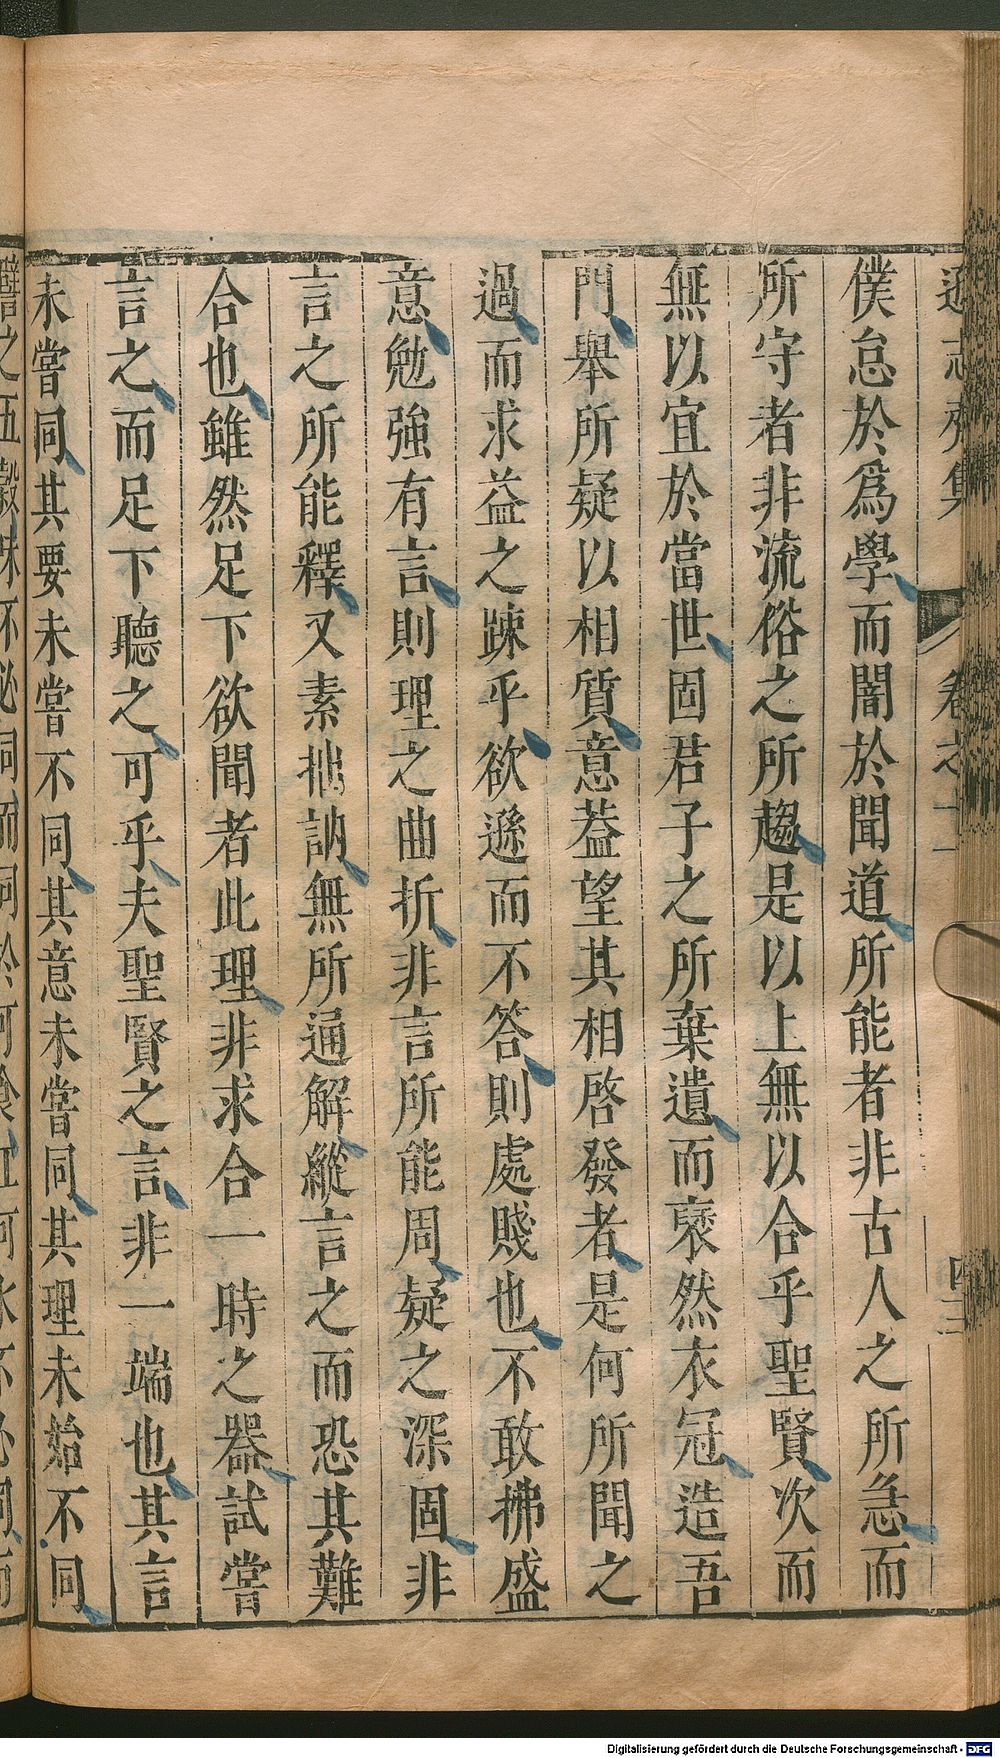 遜志齋集
卷之十一
四三
僕怠於爲學而闇於聞道所能者非古人之所急而
所守者非流俗之所趨是以上無以合乎聖賢次而
無以宜於當世固君子之所棄遺而裦然衣冠造吾
門舉所疑以相質意葢望其相啓發者是何所聞之
過而求益之踈乎欲遜而不答則處賤也不敢拂盛
意勉強有言則理之曲折非言所能周疑之深固非
言之所能釋又素拙訥無所通解縱言之而恐其難
合也雖然足下欲聞者此理非求合一時之器試嘗
言之而足下聽之可乎夫聖賢之言非一端也其言
未嘗同其要未嘗不同其意未嘗同其理未始不同
譬之五穀味不必同而同於可食江河水不必同而
Digitalisierung gefördert durch die Deutsche Forschungsgemeinschaft - DFG